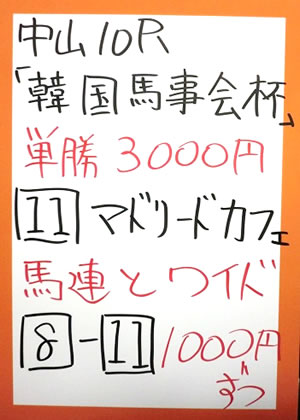 中山10R
「韓国馬事会杯」
単勝3000円
11マドリードカフェ
馬連とワイド
8-11 1000円
ずつ